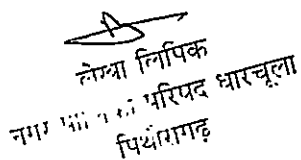 लेखा लिपिक
नगर परिषद धारचूला
पिथौरागढ़